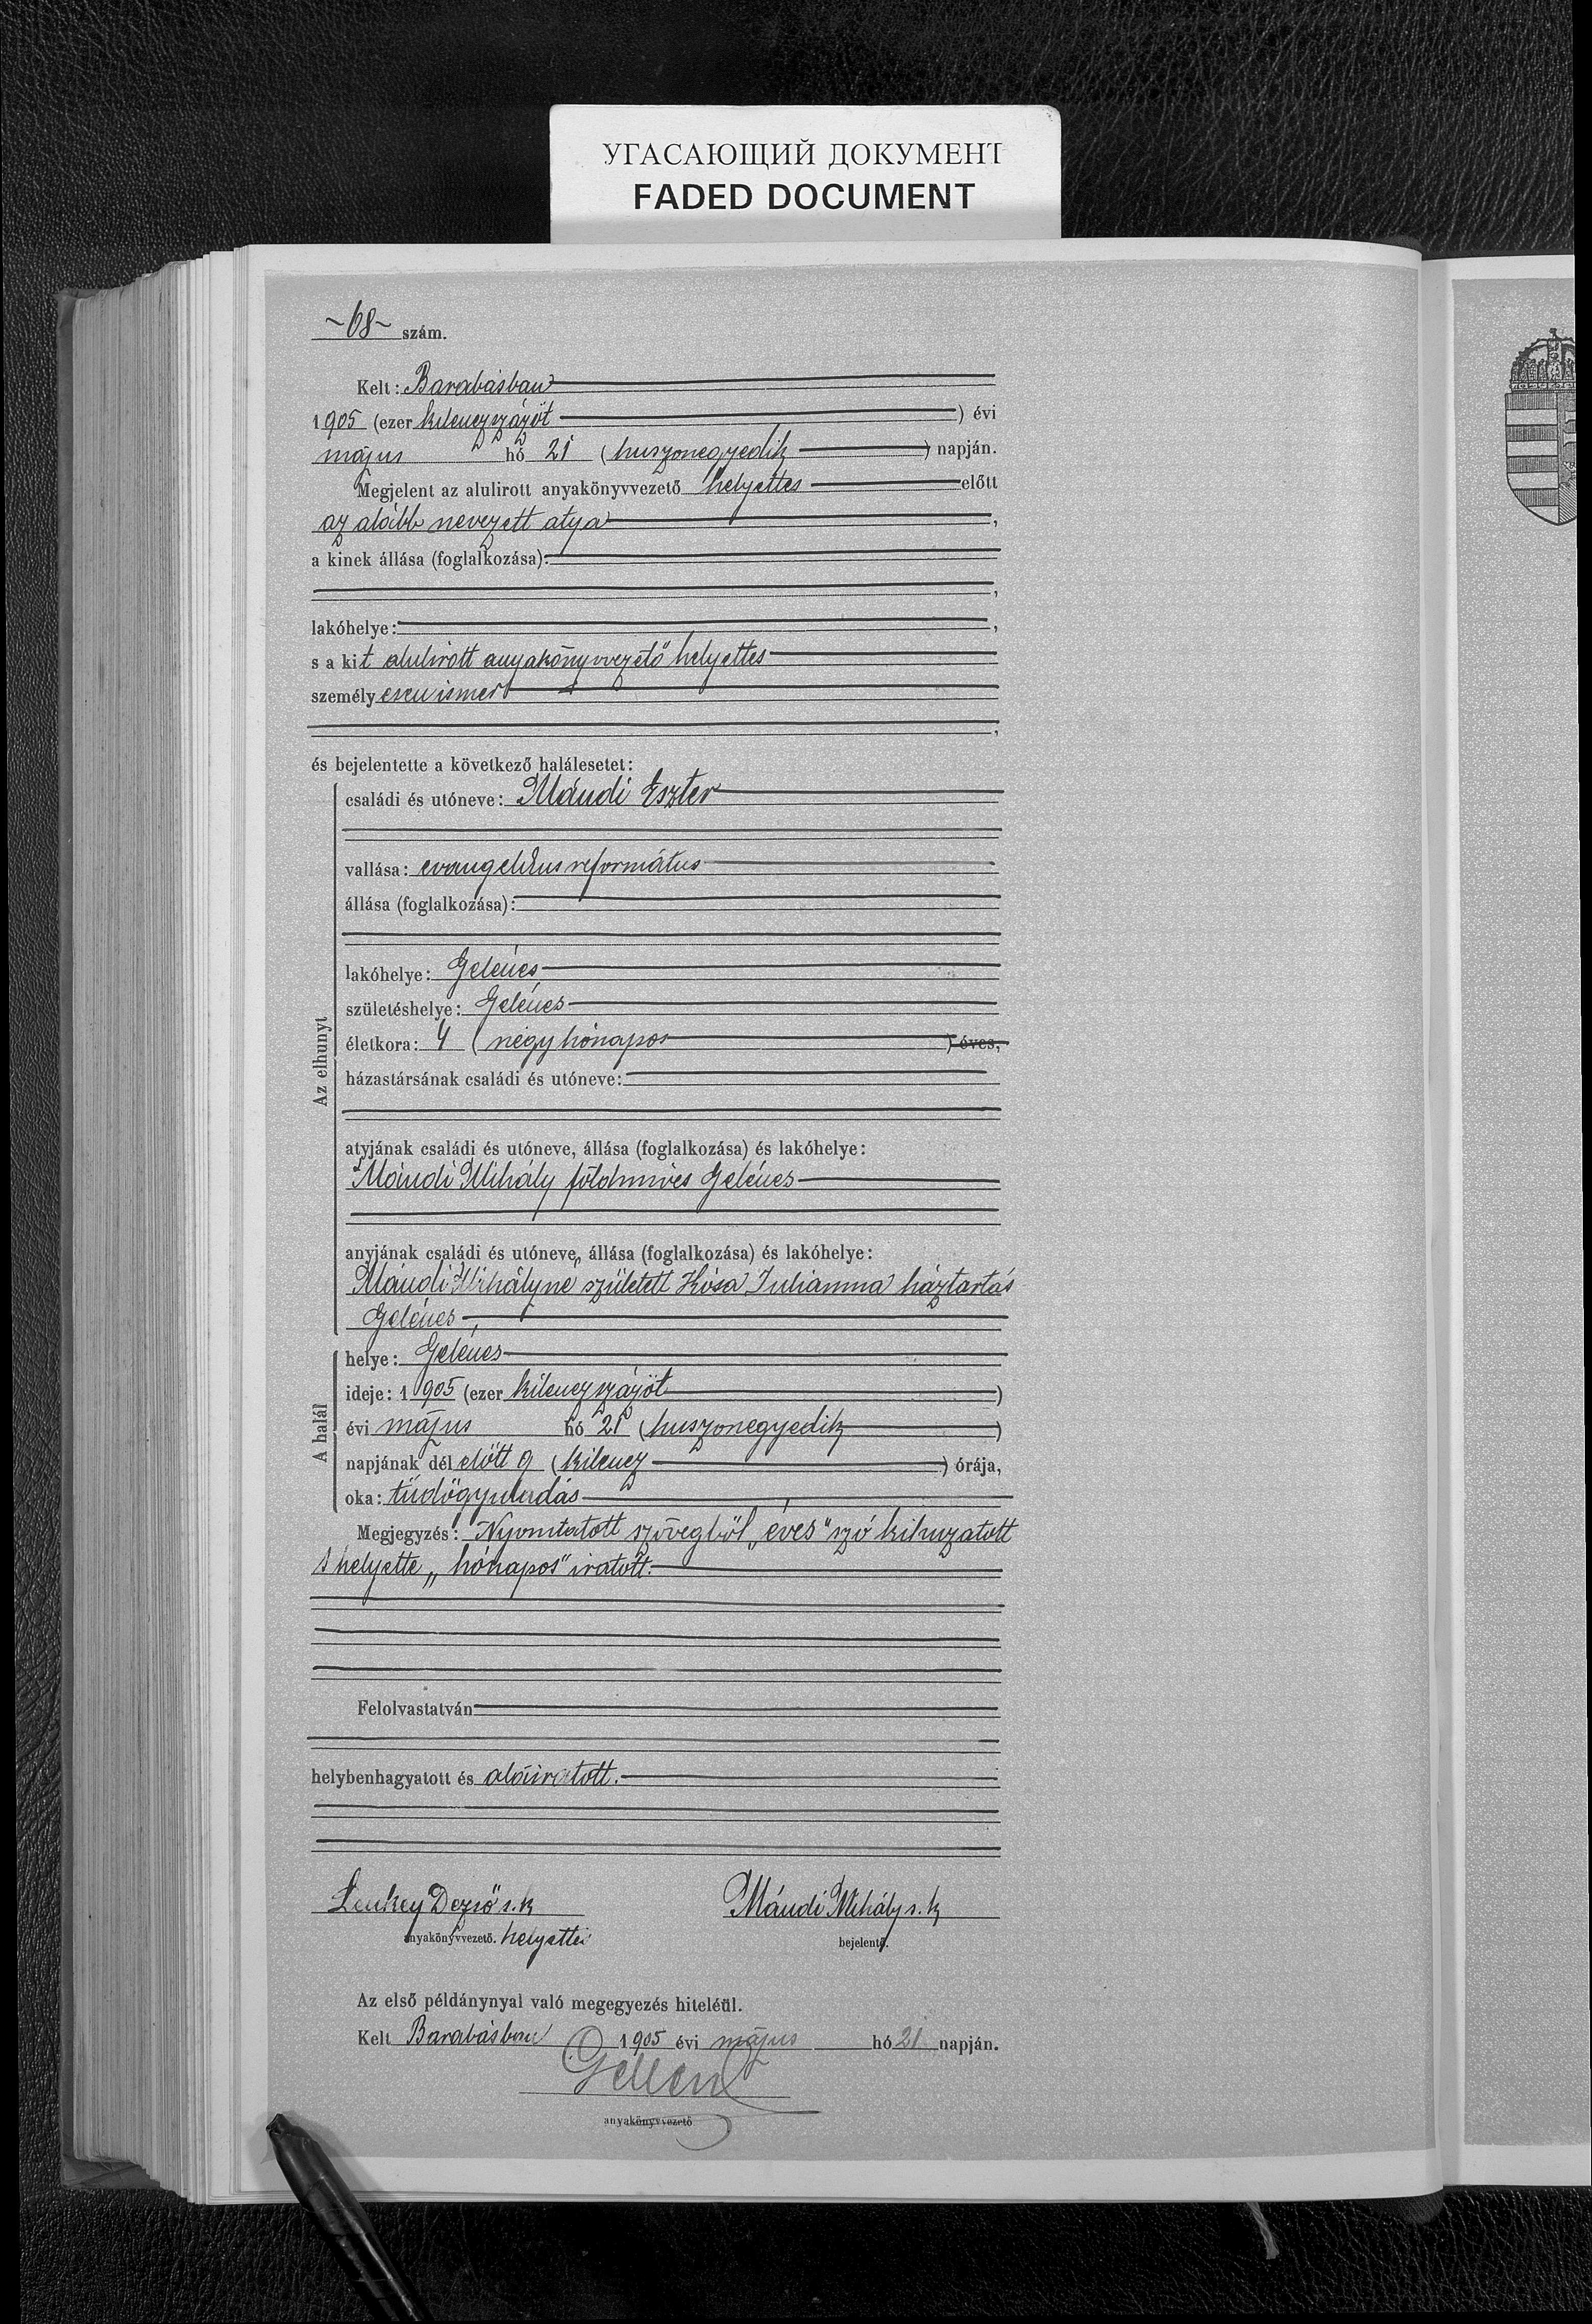 УГАСАЮЩИЙ ДОКУМЕНТ
FADED DOCUMENT
~68~ szám.
Kelt: Barabásban
1905 (ezer kilenczszázöt) évi
május hó 21 (huszonegyedik) napján.
Megjelent az alulirott anyakönyvvezető helyettes előtt
az alább nevezett atya,
a kinek állása (foglalkozása):
,
lakóhelye: ,
s a kit alulirott anyakönyvvezető helyettes
személyesen ismer
,
és bejelentette a következő halálesetet:
Az elhunyt
családi és utóneve: Mándi Eszter
vallása: evangelikus református
állása (foglalkozása):
lakóhelye: Gelénes
születéshelye: Gelénes
életkora: 4 (négy hónapos) éves,
házastársának családi és utóneve:
atyjának családi és utóneve, állása (foglalkozása) és lakóhelye:
Mándi Mihály földmives Gelénes
anyjának családi és utóneve, állása (foglalkozása) és lakóhelye:
Mándi Mihályné született Kósa Julianna háztartás
Gelénes
A halál
helye: Gelénes
ideje: 1905 (ezer kilenczszázöt)
évi május hó 21 (huszonegyedik)
napjának dél előtt 9 (kilencz) órája,
oka: tüdőgyuladás
Megjegyzés: Nyomtatott szövegből „éves" szó kihuzatott
s helyette „hónapos" iratott.
Felolvastatván
helybenhagyatott és aláiratott.
Lenkey Dezső s. k Mándi Mihály s. k
anyakönyvvezető. helyettes bejelentő.
Az első példánynyal való megegyezés hiteléül.
Kelt Barabásban 1905 évi május hó 21 napján.
anyakönyvvezető